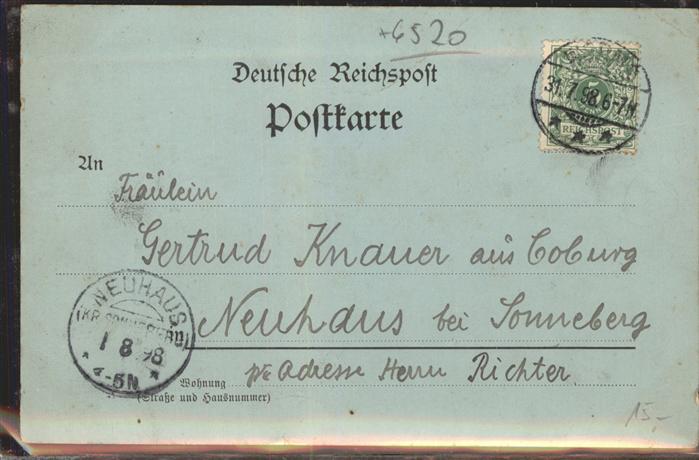 +6520
Deutsche Reichspost
Postkarte
31.7.98.6-7N.
REICHSPOST
An
Fräulein
Gertrud Knauer aus Coburg
Neuhaus bei Sonneberg
pr Adresse Herrn Richter.
NEUHAUS
(KR. SONNEBERG)
1 8 98
4-5N.
Wohnung
(Straße und Hausnummer)
15,-